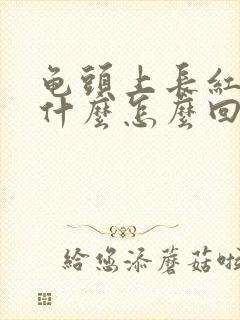 龟頭上长紅
什麼怎麼回
给您添蘑菇啦